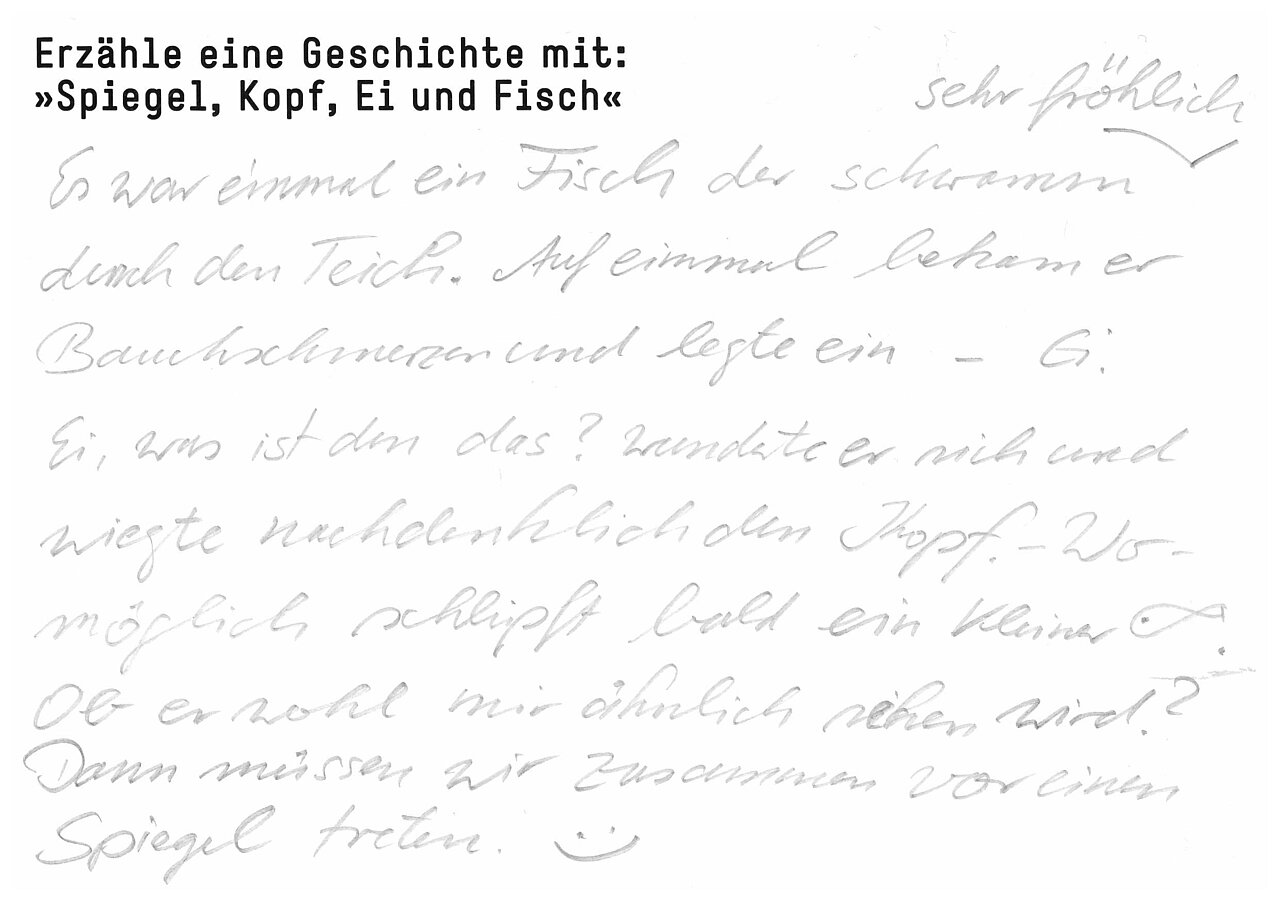 Erzähle eine Geschichte mit:
»Spiegel, Kopf, Ei und Fisch«
sehr fröhlich
Es war einmal ein Fisch der schwamm
durch den Teich. Auf einmal bekam er
Bauchschmerzen und legte ein – Ei.
Ei, was ist den das? wunderte er sich und
wiegte nachdenklich den Kopf. – Wo-
möglich schlüpft bald ein kleiner .
Ob er wohl mir ähnlich sehen wird?
Dann müssen wir zusammen vor einen
Spiegel treten.